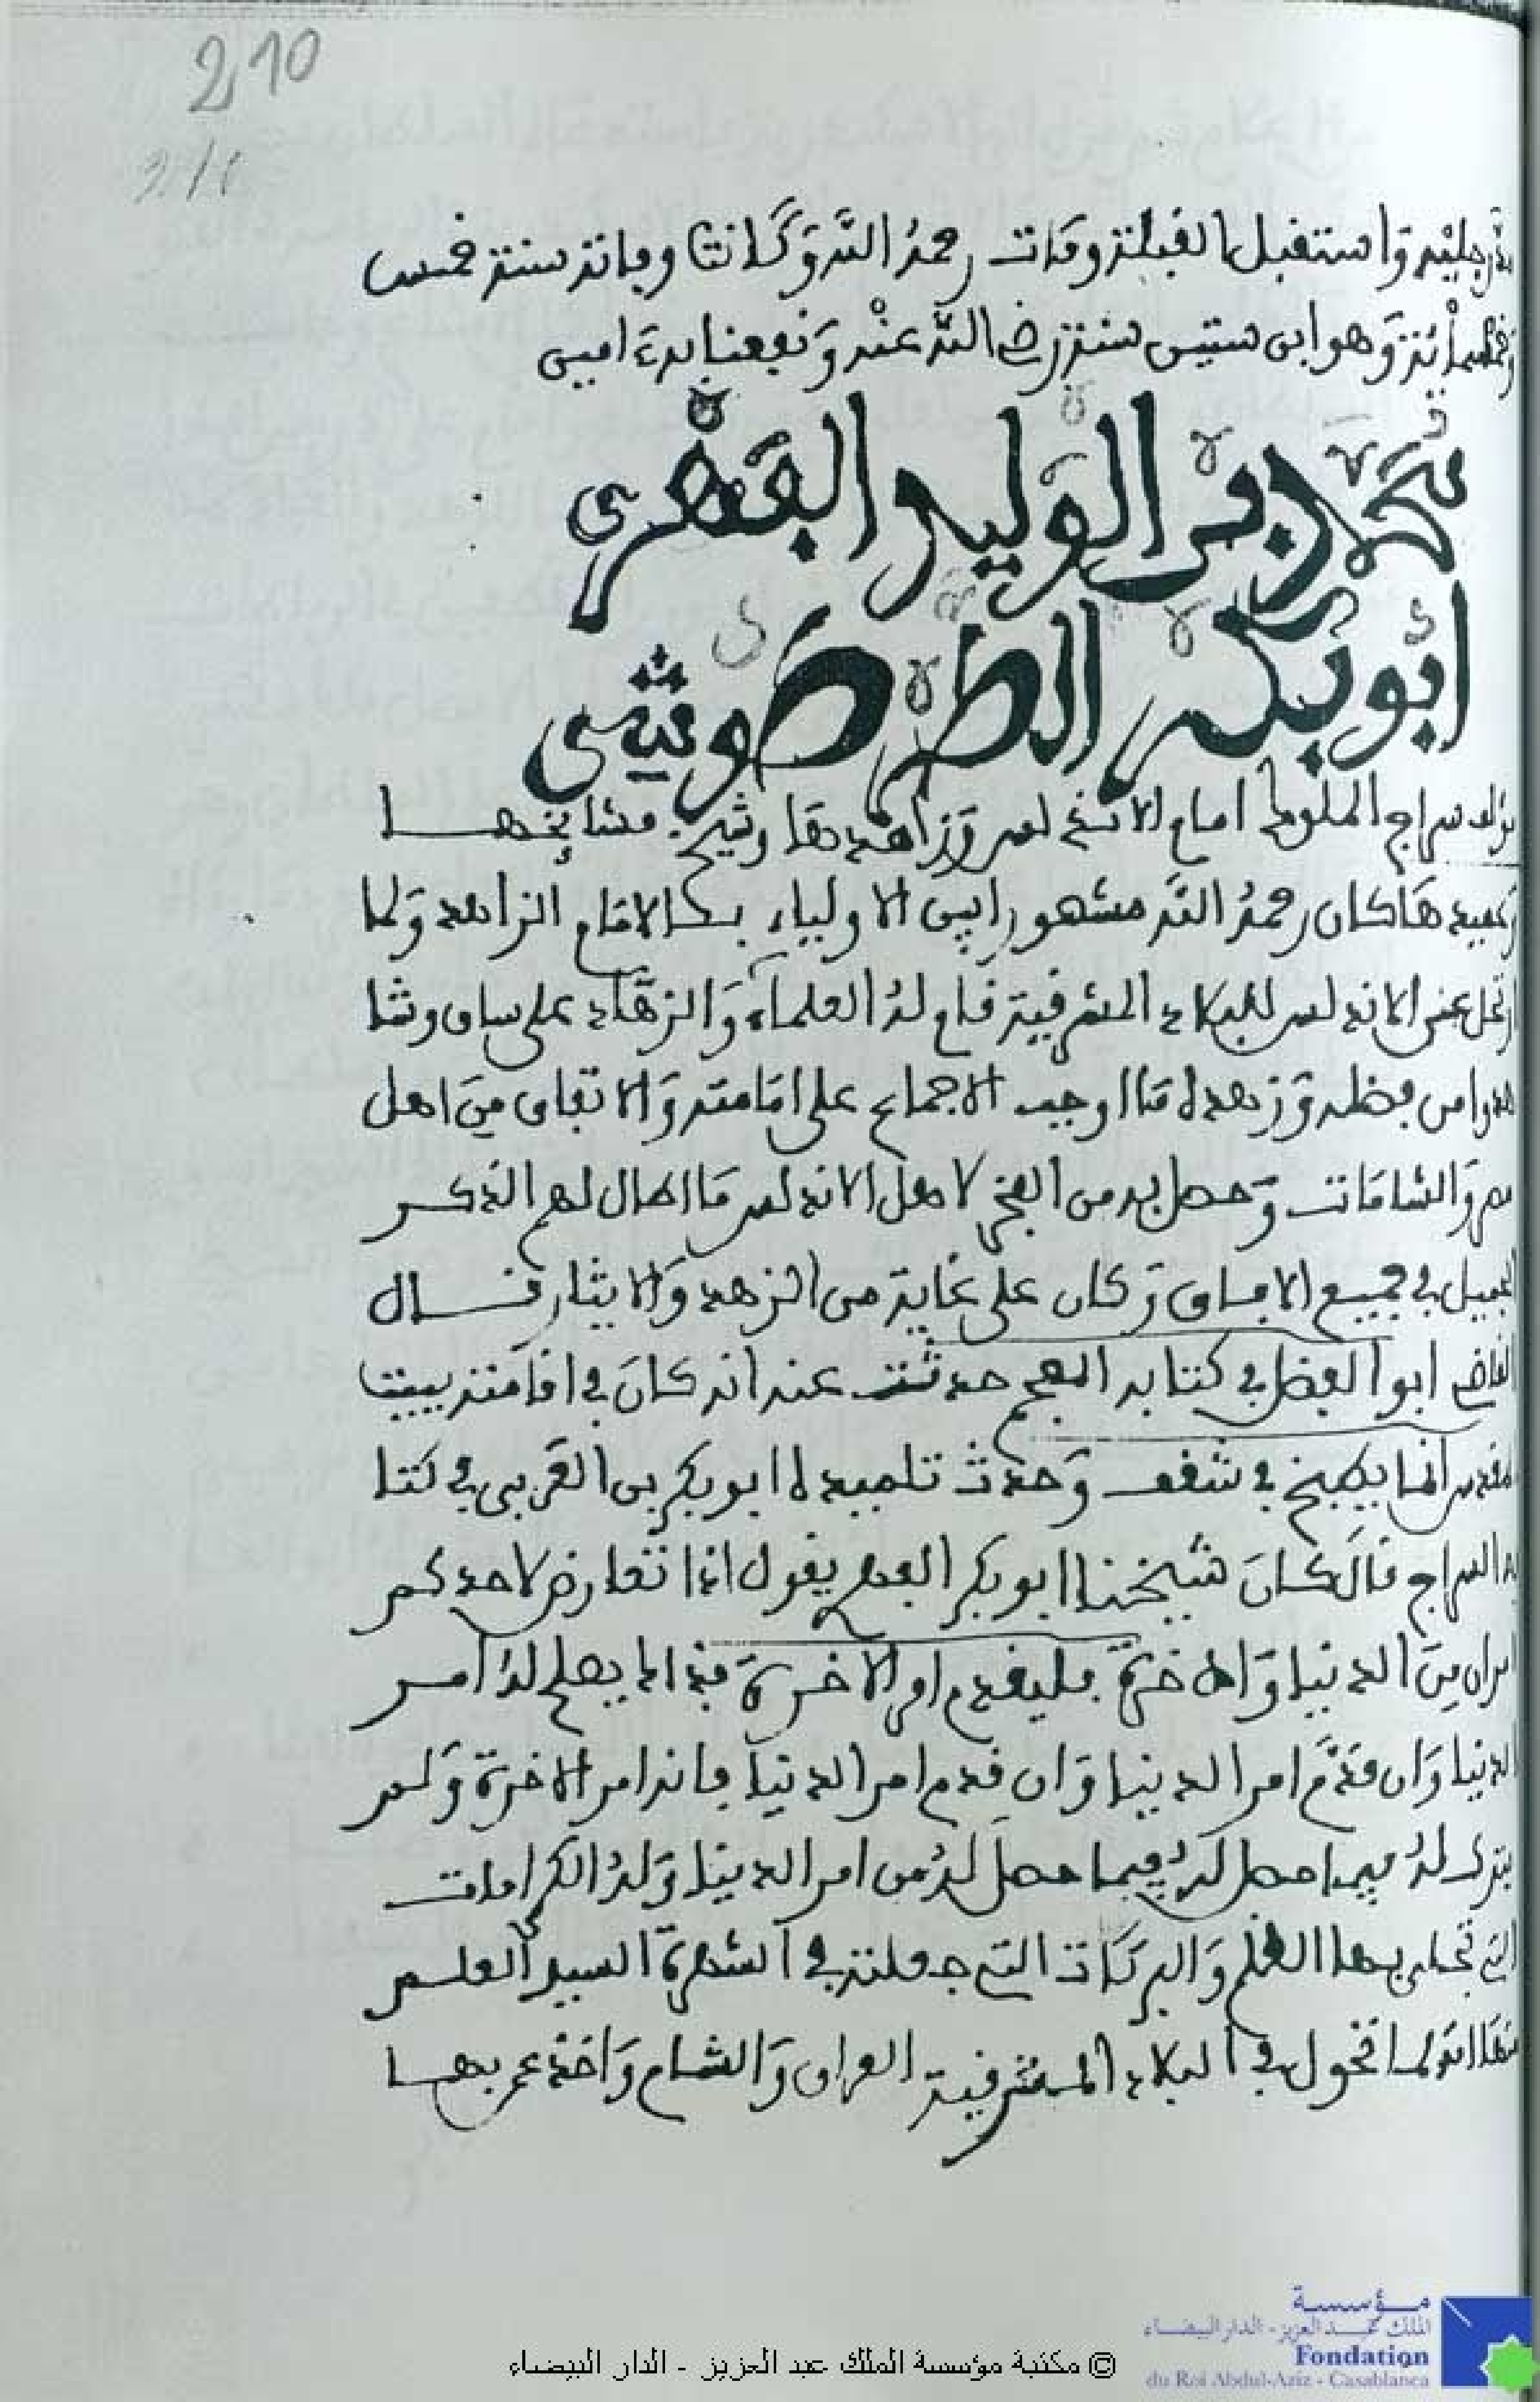 210
رجليه واستقبل القبلة ومات رحمه الله وكانت وفاته سنة خمس
وخمسمائة وهو ابن ستين سنة رضي الله عنه ونفعنا به امين
محمد بن الوليد الفهري
أبو بكر الطرطوشي
مؤلف سراج الملوك امام الاندلس وزاهدها وشيخ مشايخها
وعميدها كان رحمه الله مشهورا بين الاولياء بالامام الزاهد ولما
ارتحل عن الاندلس للبلاد المشرقية قام له العلماء والزهاد على ساق وشا
هدوا من فضله وزهده ما اوجب الاجماع على امامته والاتفاق من اهل
مصر والشامات وحصل به من الفخر لاهل الاندلس ما اطال لهم الذكر
الجميل في جميع الافاق وكان على غاية من الزهد والايثار قال
القاضي ابو الفضل في كتابه المعجم حدثت عنه انه كان في اقامته ببيت
المقدس انما يطبخ في شقف وحدث تلميذه ابو بكر بن العربي في كتا
به السراج قال كان شيخنا ابو بكر الفهري يقول اذا تعارض لاحدكم
امران من الدنيا والاخرة فليقدم امر الاخرة فبذلك يصلح له امر
الدنيا وان قدم امر الدنيا وان قدم امر الدنيا فاته امر الاخرة ولم
يترك له فيما حصل له فيما حصل له من امر الدنيا وله الكرامات
التي تحلى بها العلم والبركات التي جعلته في الشهرة السيد العلم
نقل انه لما تحول في البلاد المشرقية العراق والشام واخذ عمن بها
مؤسسة
الملك عبد العزيز - الدار البيضاء
Fondation
du Roi Abdul-Aziz - Casablanca
© مكتبة مؤسسة الملك عبد العزيز - الدار البيضاء